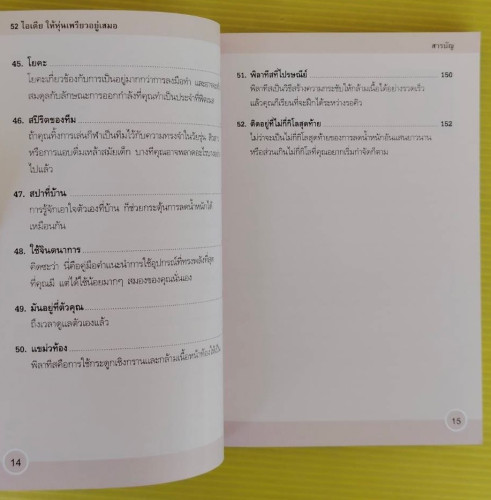 52 ไอเดีย ให้หุ่นเพรียวอยู่เสมอ
45. โยคะ
โยคะเกี่ยวข้องกับการเป็นอยู่มากกว่าการลงมือทำ และอาจ
สมดุลกับลักษณะการออกกำลังที่คุณทำเป็นประจำที่ฟิตเนส
46. สปิริตของทีม
ถ้าคุณทิ้งการเล่นกีฬาเป็นทีมไว้กับความทรงจำในวัยรุ่น
หรือการแอบดื่มเหล้าสมัยเด็ก บางทีคุณอาจพลาดอะไรบาง
ไปแล้ว
47. สปาที่บ้าน
การรู้จักเอาใจตัวเองที่บ้าน ก็ช่วยกระตุ้นการลดน้ำหนักได้
เหมือนกัน
48. ใช้จินตนาการ
คิดซะว่า นี่คือคู่มือคำแนะนำการใช้อุปกรณ์ที่ทรงพลังที่สุด
ที่คุณมี แต่ได้ใช้น้อยมากๆ สมองของคุณนั่นเอง
49. มันอยู่ที่ตัวคุณ
ถึงเวลาดูแลตัวเองแล้ว
50. แขม่วท้อง
พิลาทิสคือการใช้กระดูกเชิงกรานและกล้ามเนื้อหน้าท้อง
14
สารบัญ
51. พิลาทิสที่ไปรษณีย์ 150
พิลาทิสเป็นวิธีสร้างความกระชับให้กล้ามเนื้อได้อย่างรวดเร็ว
แล้วคุณก็เรียนที่จะฝึกได้ระหว่างรอคิว
52. ติดอยู่ที่ไม่กี่กิโลสุดท้าย 152
ไม่ว่าจะเป็นไม่กี่กิโลสุดท้ายของการลดน้ำหนักอันแสนยาวนาน
หรือส่วนเกินไม่กี่กิโลที่คุณอยากเริ่มกำจัดก็ตาม
15